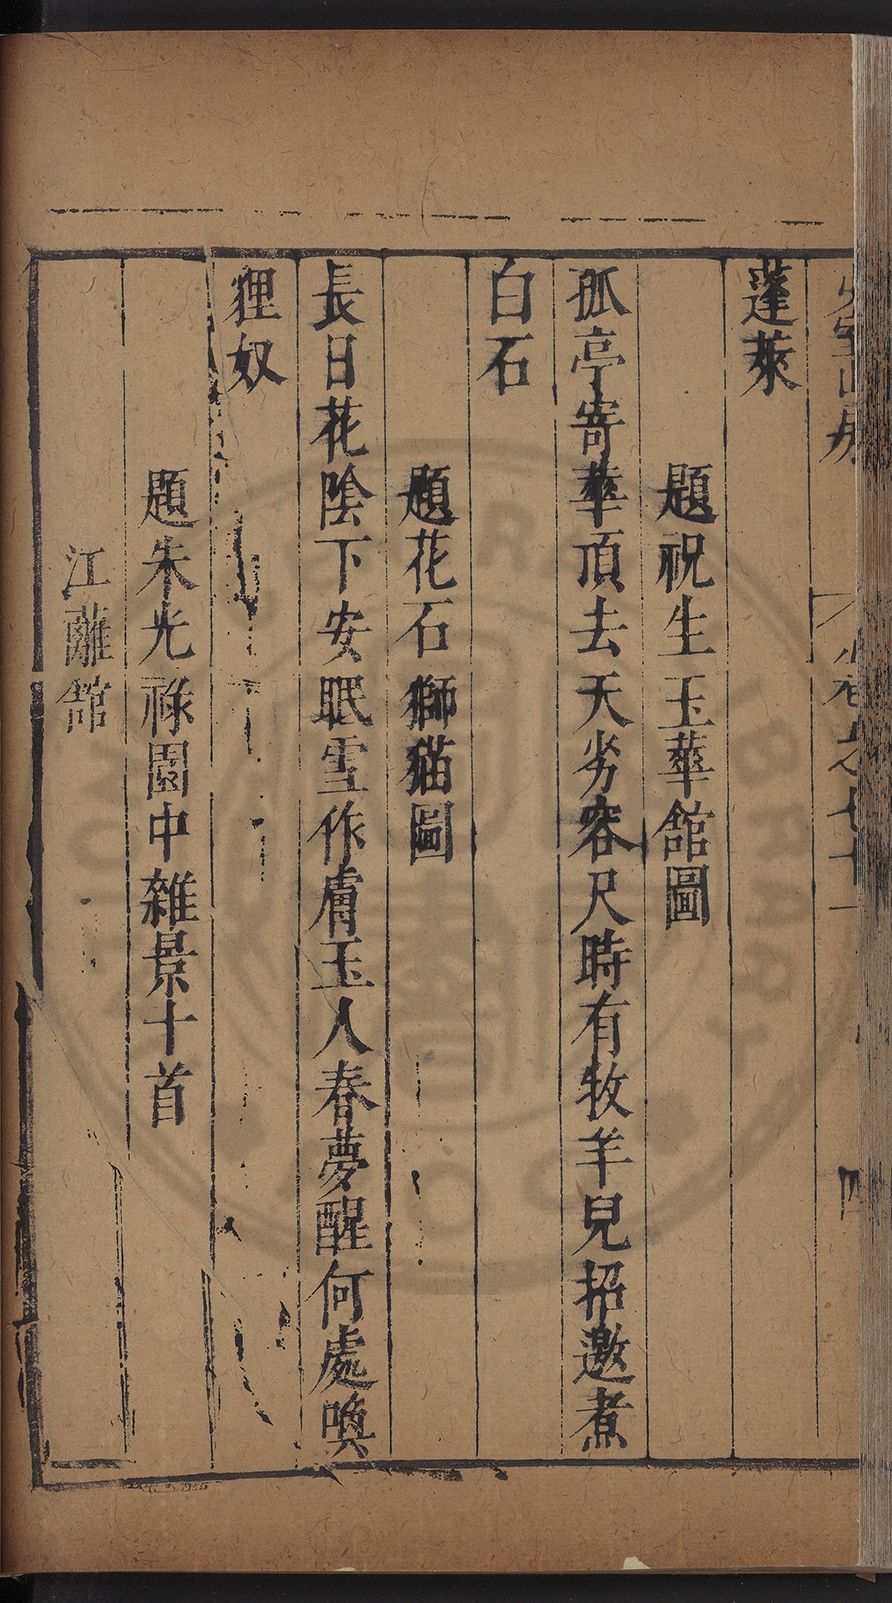 蓬萊
題祝生玉華館圖
孤亭寄華頂去天劣容尺時有牧羊兒招邀煮
白石
題花石獅猫圖
長日花陰下安眠雪作膚玉人春夢醒何處喚
狸奴
題朱光祿園中雜景十首
江蘺館